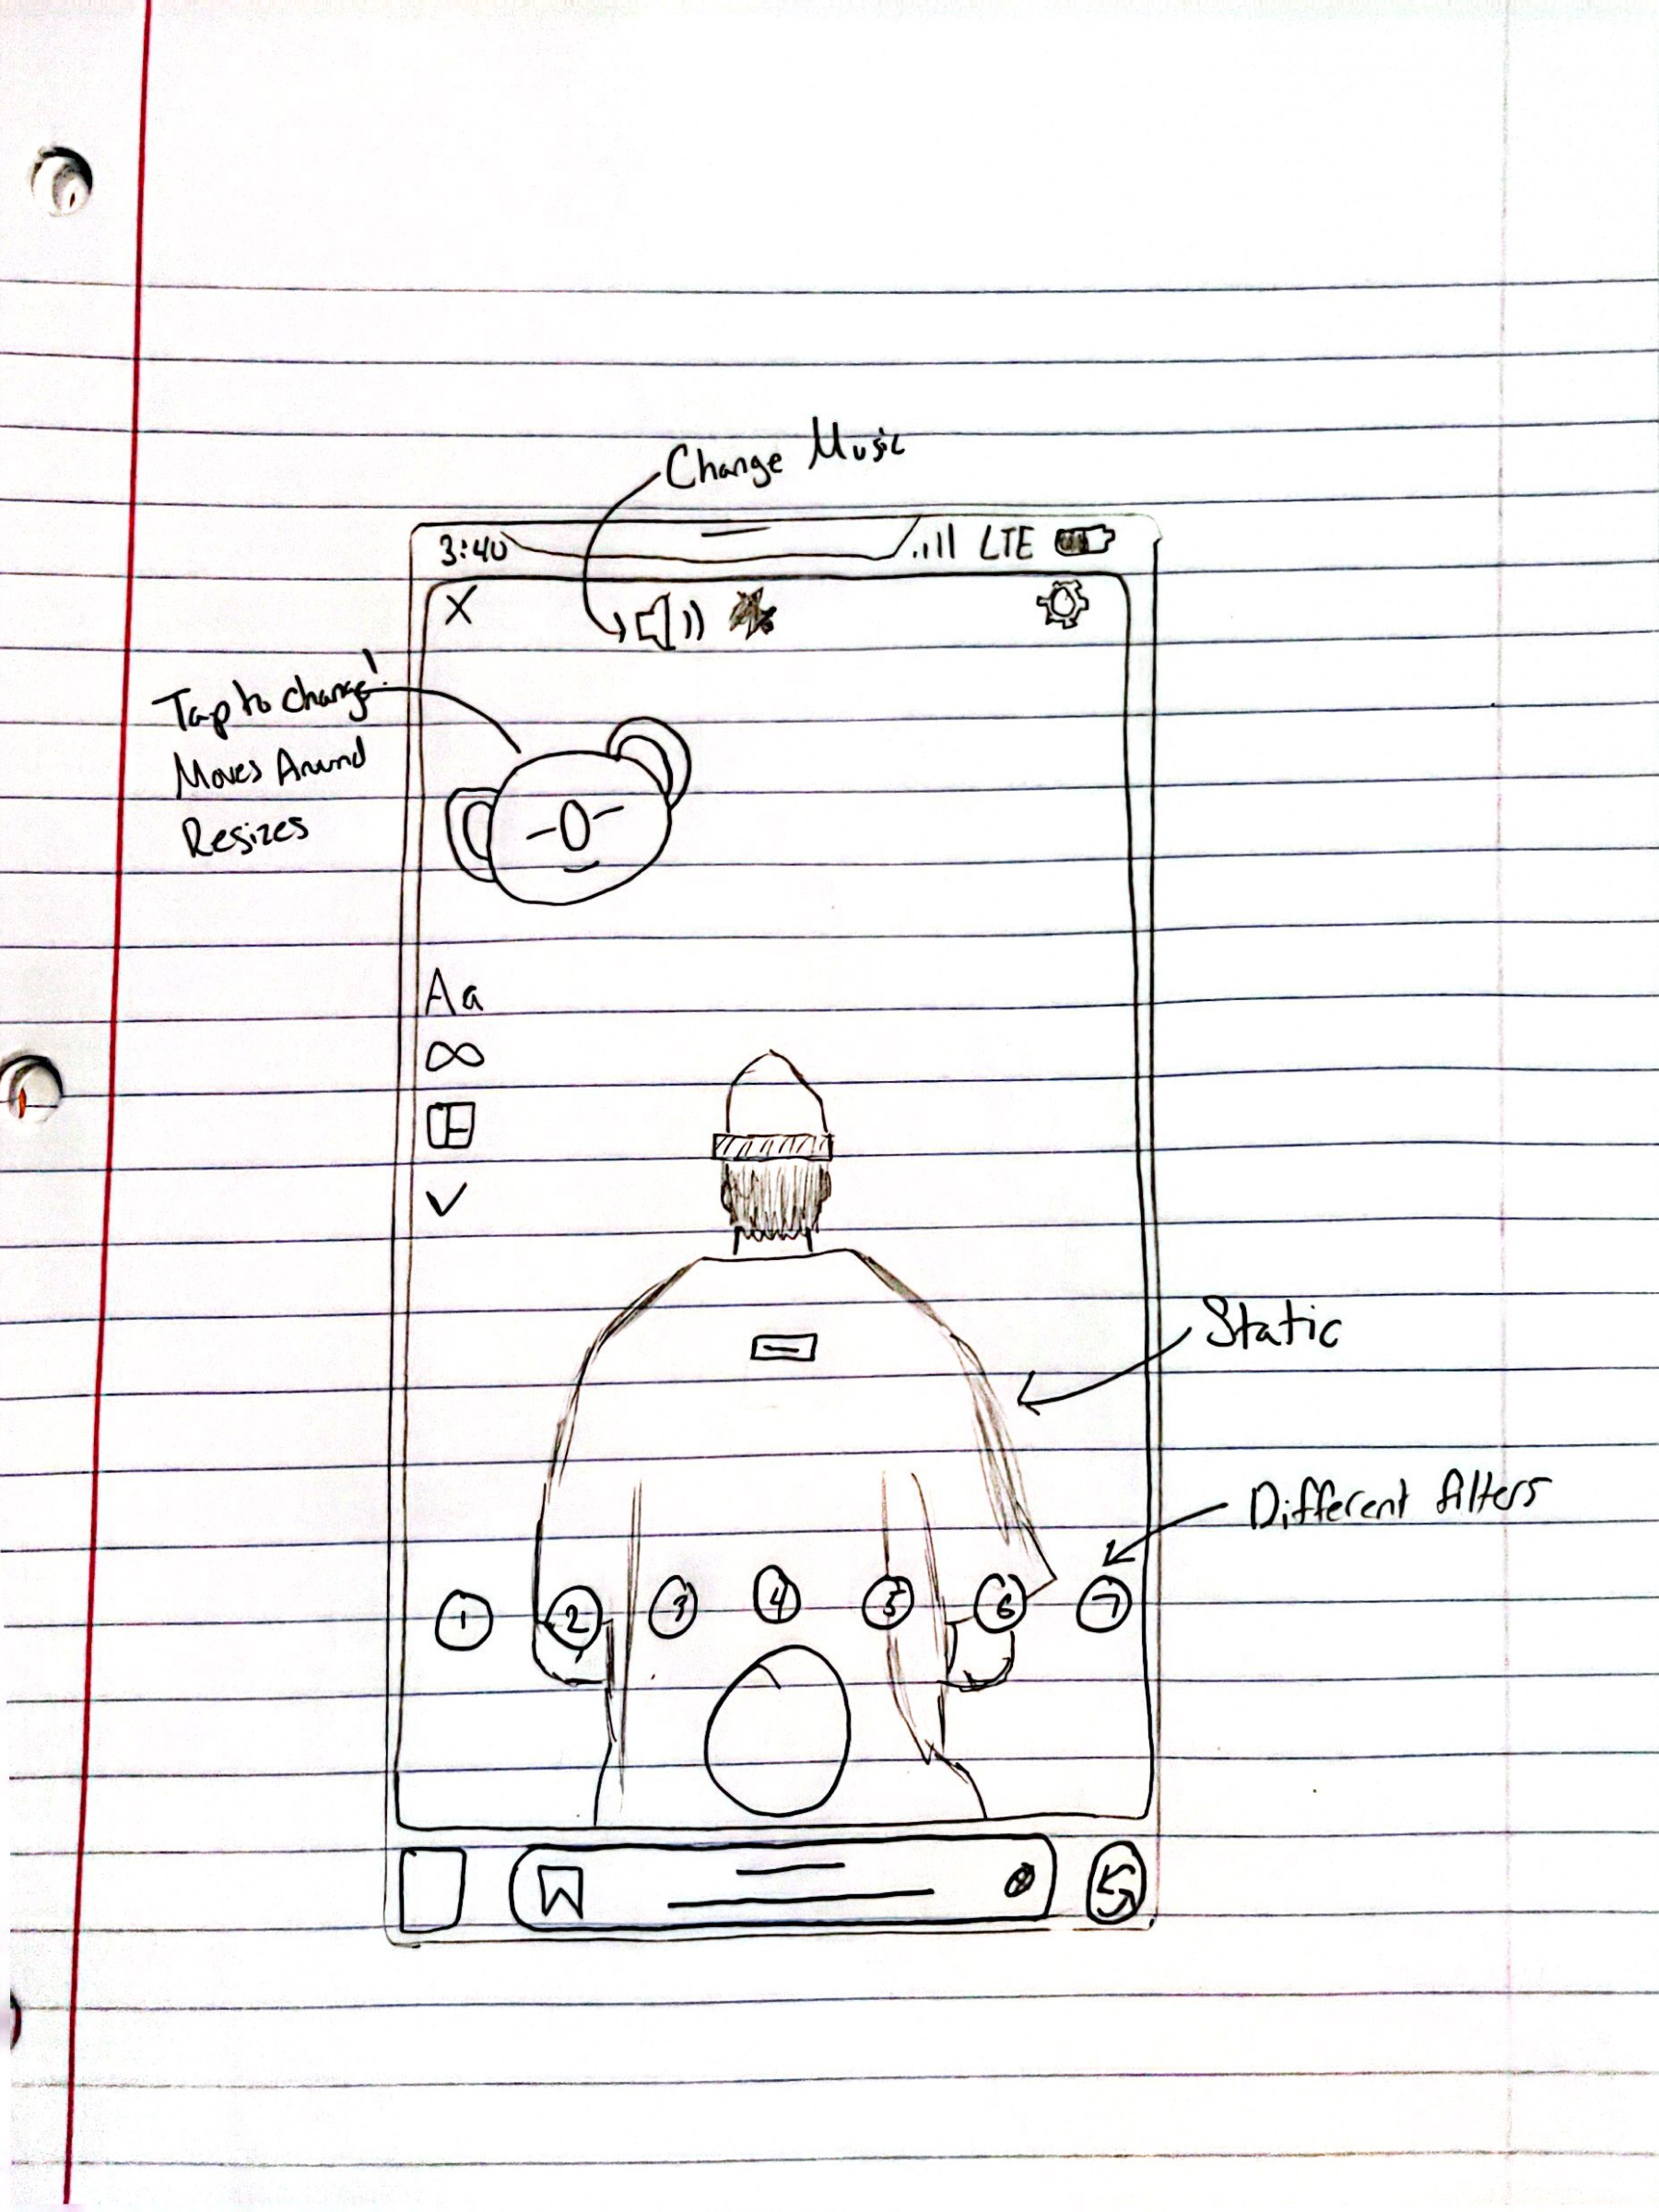 Change Music
3:40 LTE
X
Tap to change!
Moves Around
Resizes
Aa
Static
Different filters
1 2 3 4 5 6 7